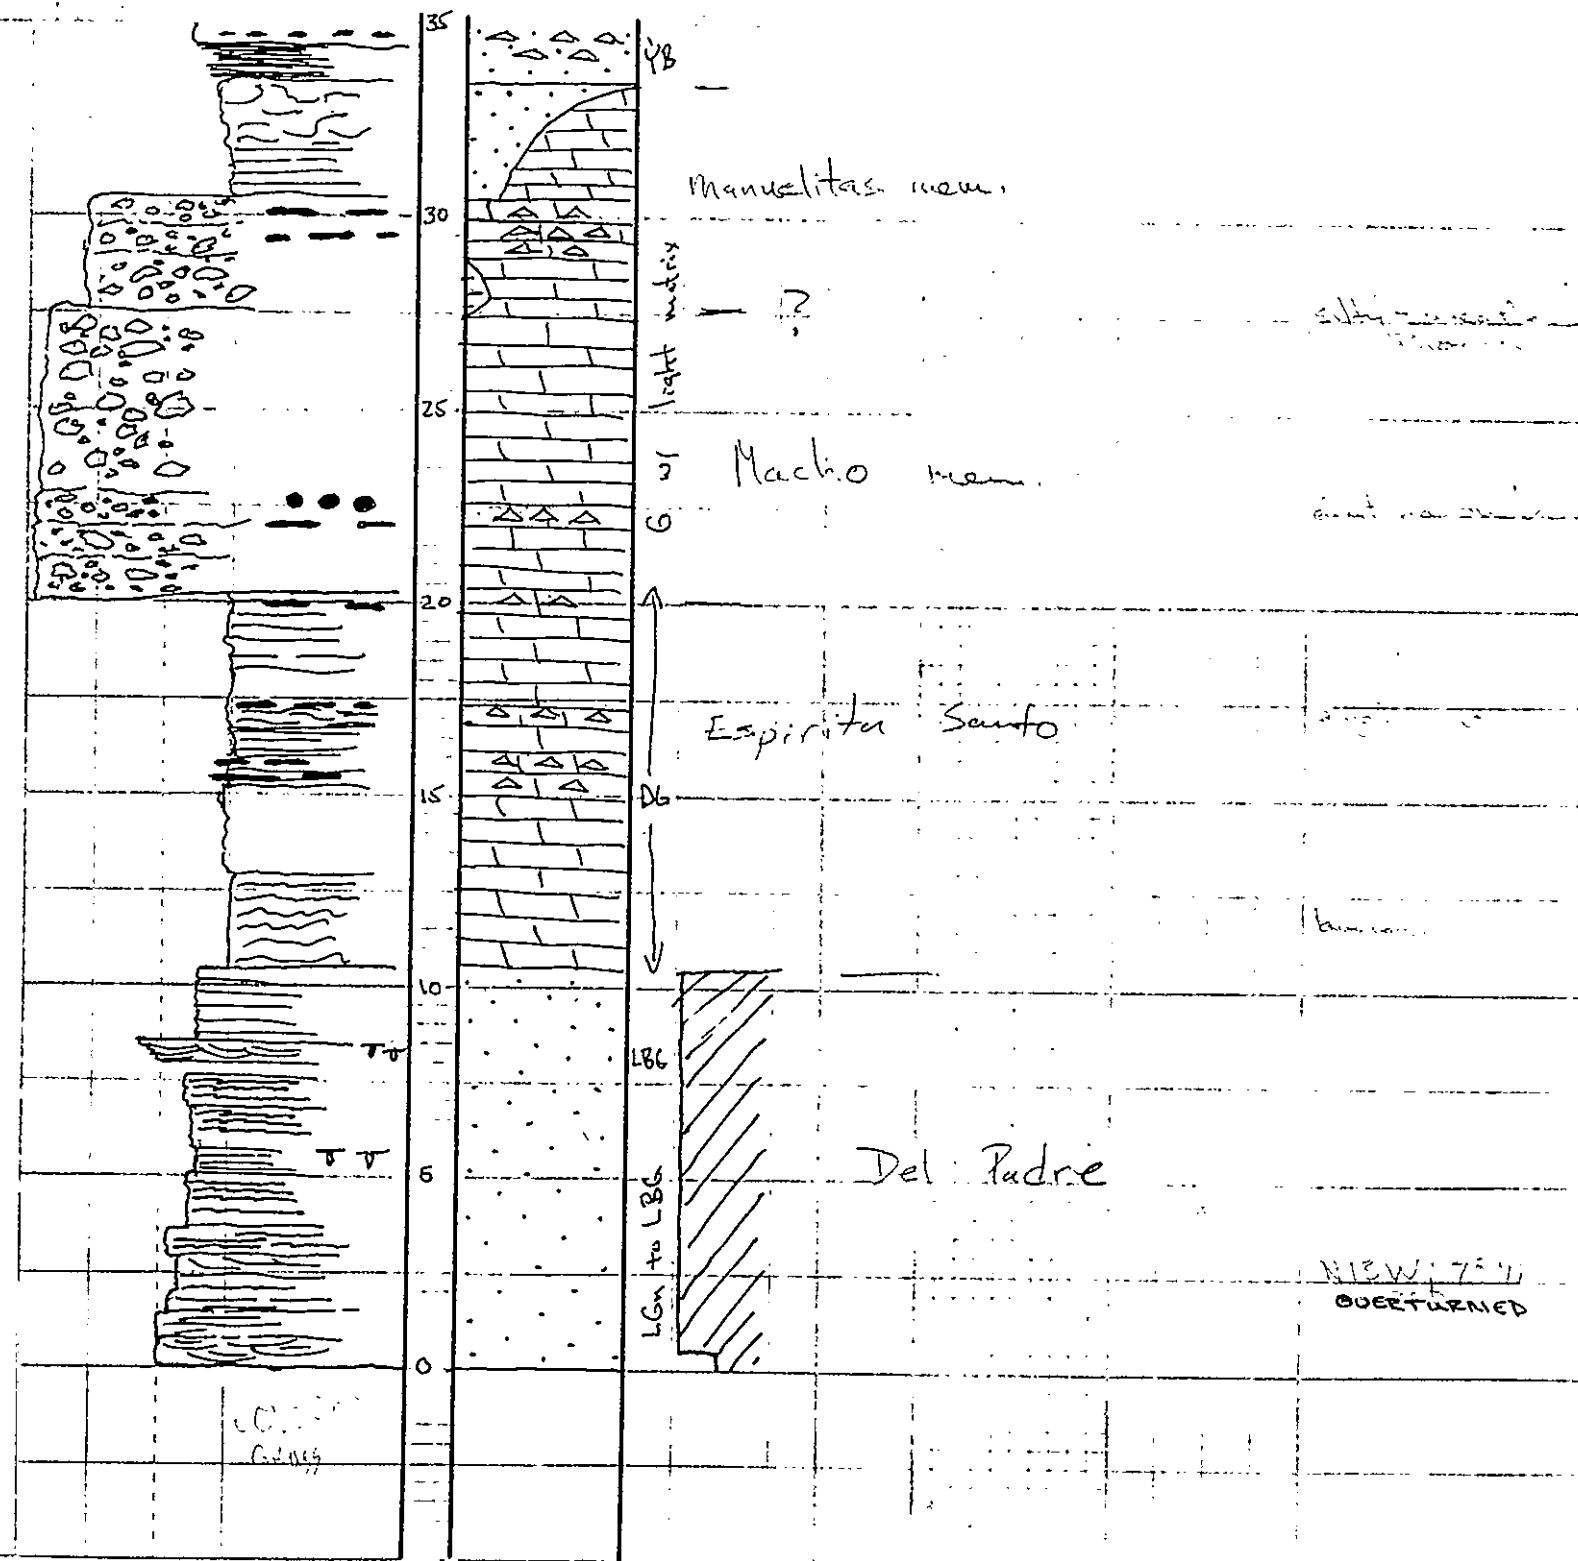 35
YB
Manuelitas mem.
30
light matrix
?
25
G w/
Macho mem.
20
Espiritu Santo
15
DG
10
LBG
5
Del Padre
LGn to LBG
OVERTURNED
0